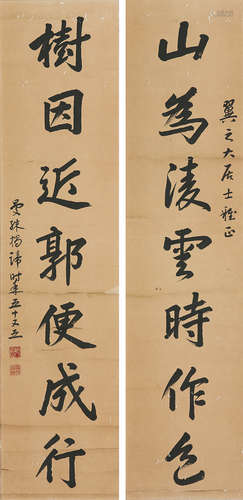 翼之大居士雅正
山為淩雲時作色
樹因近郭便成行
曼殊揭諦時年五十又五